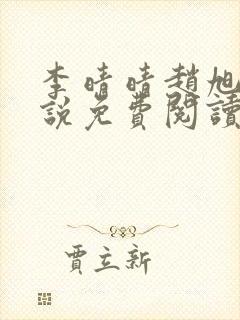 李晴晴趙旭
說免費閱讀
賈立新